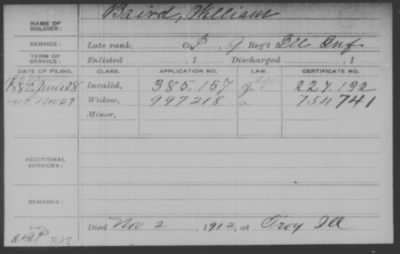 NAME OF SOLDIER: Baird, William
SERVICE: Late rank, Co. Reg't Ill Inf
TERM OF SERVICE: Enlisted , 1 Discharged , 1
DATE OF FILING. CLASS. APPLICATION NO. LAW. CERTIFICATE NO.
June 28 Invalid, 385.157 227.192
Nov 29 Widow, 997218 754741
Minor,
ADDITIONAL SERVICES:
REMARKS:
Died Nov 2 , 1912, at Troy Ill